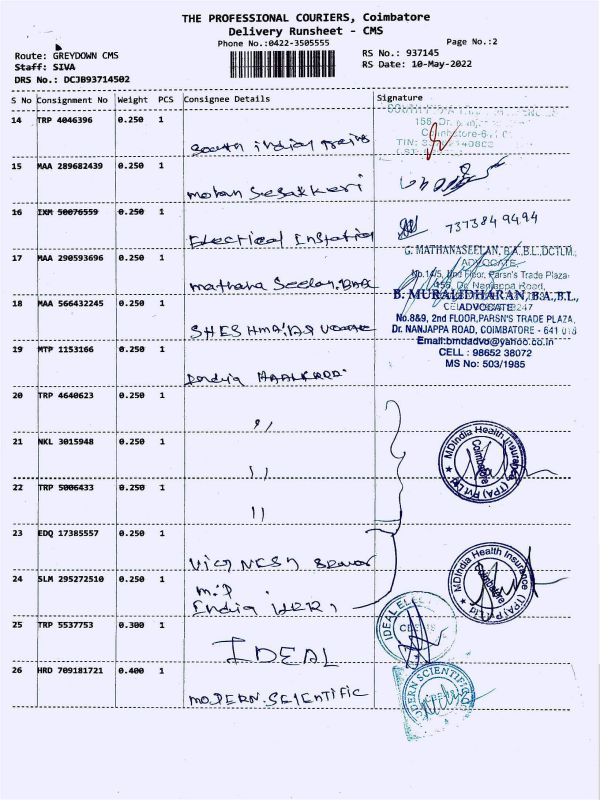 THE PROFESSIONAL COURIERS, Coimbatore
Delivery Runsheet - CMS
Phone No.:0422-3505555
Page No.:2
Route: GREYDOWN CMS
Staff: SIVA
DRS No.: DCJB93714502
RS No.: 937145
RS Date: 10-May-2022
S No Consignment No Weight PCS Consignee Details Signature
14 TRP 4046396 0.250 1
South indial
15 MAA 289682439 0.250 1
mohan
16 IXM 50076559 0.250 1
Electrical
7373849494
17 MAA 290593696 0.250 1
mathana Seelan
G. MATHANASEELAN, B.A.,B.L.,DCTLM.,
ADVOCATE
No.14/5, 2nd Floor, Parsn's Trade Plaza
Dr. Nanjappa Road,
18 MAA 566432245 0.250 1
B. MURALIDHARAN, B.A.,B.L.,
ADVOCATE
No.8&9, 2nd FLOOR, PARSN'S TRADE PLAZA,
Dr. NANJAPPA ROAD, COIMBATORE - 641 018
Email:bmdadvo@yahoo.co.in
CELL : 98652 38072
MS No: 503/1985
19 MTP 1153166 0.250 1
20 TRP 4640623 0.250 1
21 NKL 3015948 0.250 1
MDIndia Health Insurance (TPA) Pvt Ltd
Coimbatore
22 TRP 5006433 0.250 1
23 EDQ 17385557 0.250 1
24 SLM 295272510 0.250 1
m.D
India
MDIndia Health Insurance (TPA) P Ltd
Coimbatore
25 TRP 5537753 0.300 1
IDEAL
IDEAL
26 HRD 709181721 0.400 1
MODERN SCIENTIFIC
MODERN SCIENTIFIC